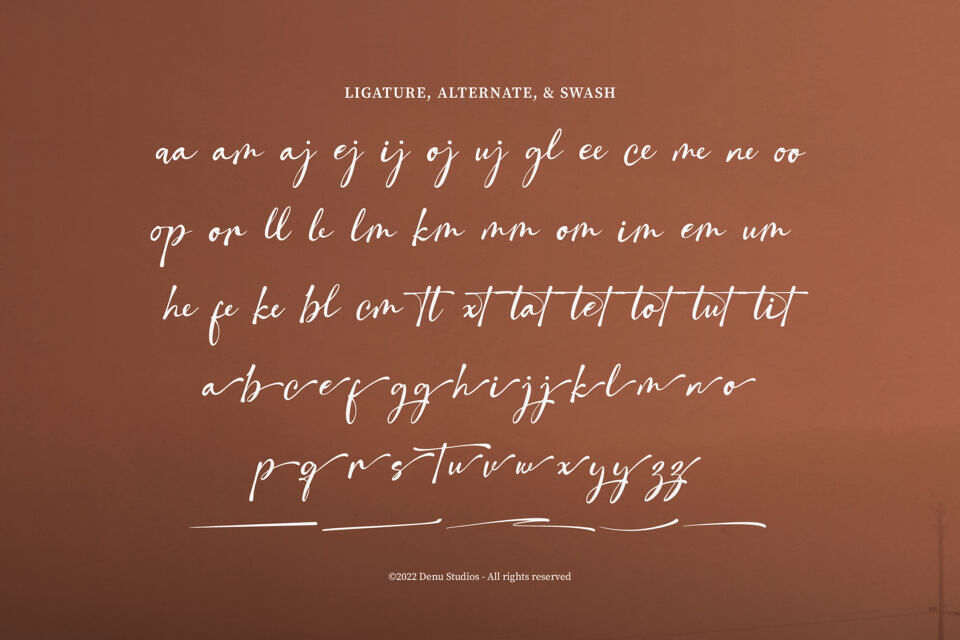 LIGATURE, ALTERNATE, & SWASH
aa am aj ej ij oj uj gl ee ce me ne oo
op or ll le lm km mm om im em um
he fe ke bl cm tt xt tat tet tot tut tit
a b c e f g g h i j j k l m n o
p q r s t u v w x y y z z
©2022 Denu Studios - All rights reserved